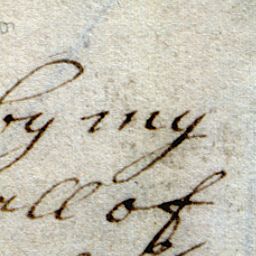 by my
all of